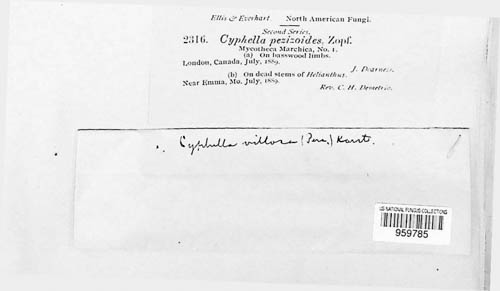 Ellis & Everhart North American Fungi.
Second Series.
2316. Cyphella pezizoides, Zopf.
Mycotheca Marchica, No. 1.
(a) On basswood limbs.
London, Canada, July, 1889. J. Dearness.
(b) On dead stems of Helianthus.
Near Emma, Mo. July, 1889. Rev. C. H. Demetrio.
Cyphella villosa (Pers.) Karst.
US NATIONAL FUNGUS COLLECTIONS
959785